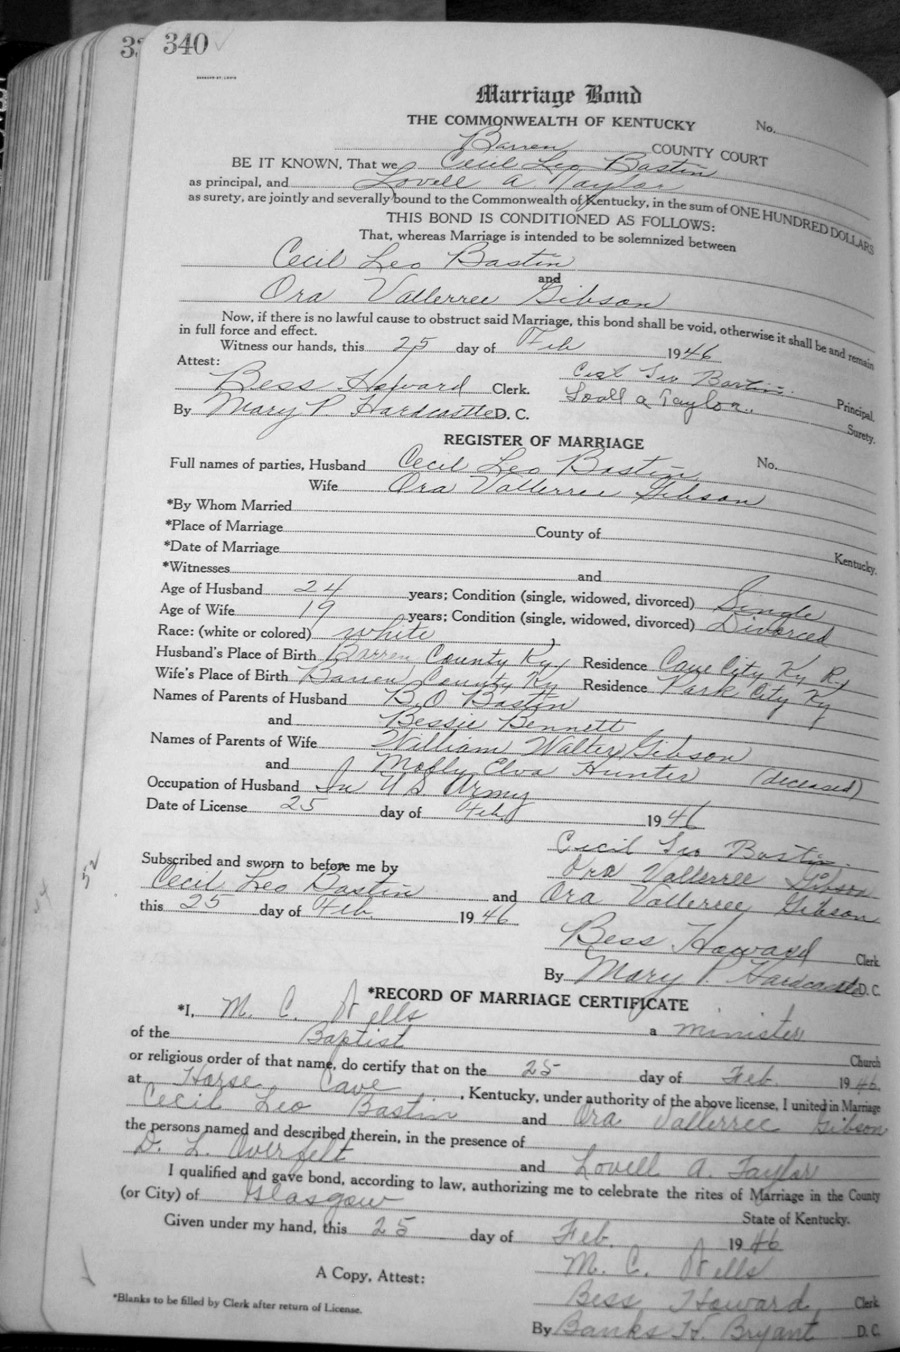 340
Marriage Bond
THE COMMONWEALTH OF KENTUCKY No.
Barren COUNTY COURT
BE IT KNOWN, That we Cecil Leo Bastin
as principal, and Lovell A Taylor
as surety, are jointly and severally bound to the Commonwealth of Kentucky, in the sum of ONE HUNDRED DOLLARS
THIS BOND IS CONDITIONED AS FOLLOWS:
That, whereas Marriage is intended to be solemnized between
Cecil Leo Bastin
and
Ora Vallerree Gibson
Now, if there is no lawful cause to obstruct said Marriage, this bond shall be void, otherwise it shall be and remain
in full force and effect.
Witness our hands, this 25 day of Feb 1946
Attest: Leo Bastin Principal.
Bess Howard Clerk. A Taylor Surety.
By Mary P. Hardcastle D. C.
REGISTER OF MARRIAGE
Full names of parties, Husband Cecil Leo Bastin No.
Wife Ora Vallerree Gibson
*By Whom Married
*Place of Marriage County of Kentucky.
*Date of Marriage
*Witnesses and
Age of Husband 24 years; Condition (single, widowed, divorced) Single
Age of Wife 19 years; Condition (single, widowed, divorced) Divorced
Race: (white or colored) white
Husband's Place of Birth Barren County Ky Residence Cave City Ky R,
Wife's Place of Birth Barren County Ky Residence Park City Ky
Names of Parents of Husband B.O Bastin
and Bessie Bennett
Names of Parents of Wife William Walter Gibson
and Molly Elva Hunter (deceased)
Occupation of Husband In U S Army
Date of License 25 day of Feb 1946
Cecil Leo Bastin
Subscribed and sworn to before me by Ora Vallerree Gibson
Cecil Leo Bastin and Ora Vallerree Gibson
this 25 day of Feb 1946
Bess Howard Clerk
By Mary P. Hardcastle D. C.
*RECORD OF MARRIAGE CERTIFICATE
*I, M. C. Wells a minister
of the Baptist Church
or religious order of that name, do certify that on the 25 day of Feb. 1946.
at Horse Cave, Kentucky, under authority of the above license, I united in Marriage
Cecil Leo Bastin and Ora Vallerree Gibson
the persons named and described therein, in the presence of
D. L. Overfelt and Lovell A. Taylor
I qualified and gave bond, according to law, authorizing me to celebrate the rites of Marriage in the County
(or City) of Glasgow State of Kentucky.
Given under my hand, this 25 day of Feb. 1946
M. C. Wells
A Copy, Attest: Bess Howard, Clerk
*Blanks to be filled by Clerk after return of License.
By Banks H. Bryant D. C.